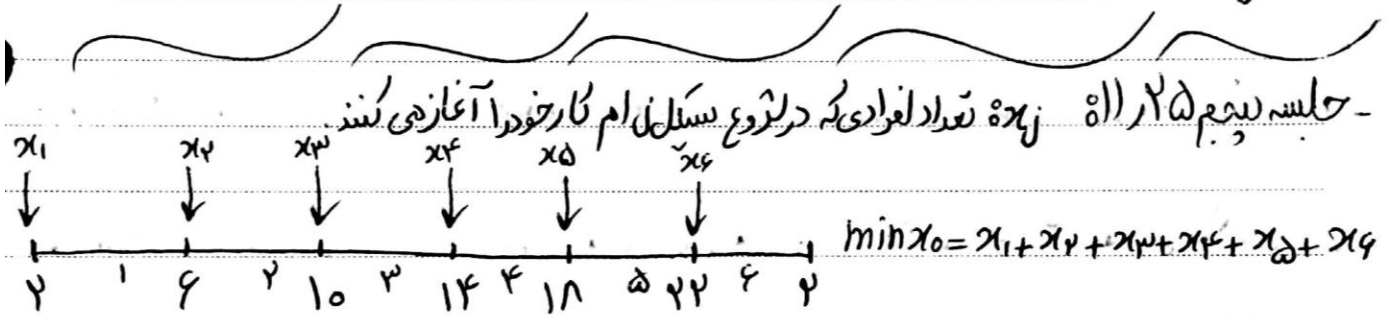 - جلسه پنجم ۲۵ ر ۱۱: xj: تعداد افرادی که در شروع سیکل j ام کار خود را آغاز می کنند.
x۱ x۲ x۳ x۴ x۵ x۶
min x₀ = x۱ + x۲ + x۳ + x۴ + x۵ + x۶
۲ ۱ ۶ ۲ ۱۰ ۳ ۱۴ ۴ ۱۸ ۵ ۲۲ ۶ ۲